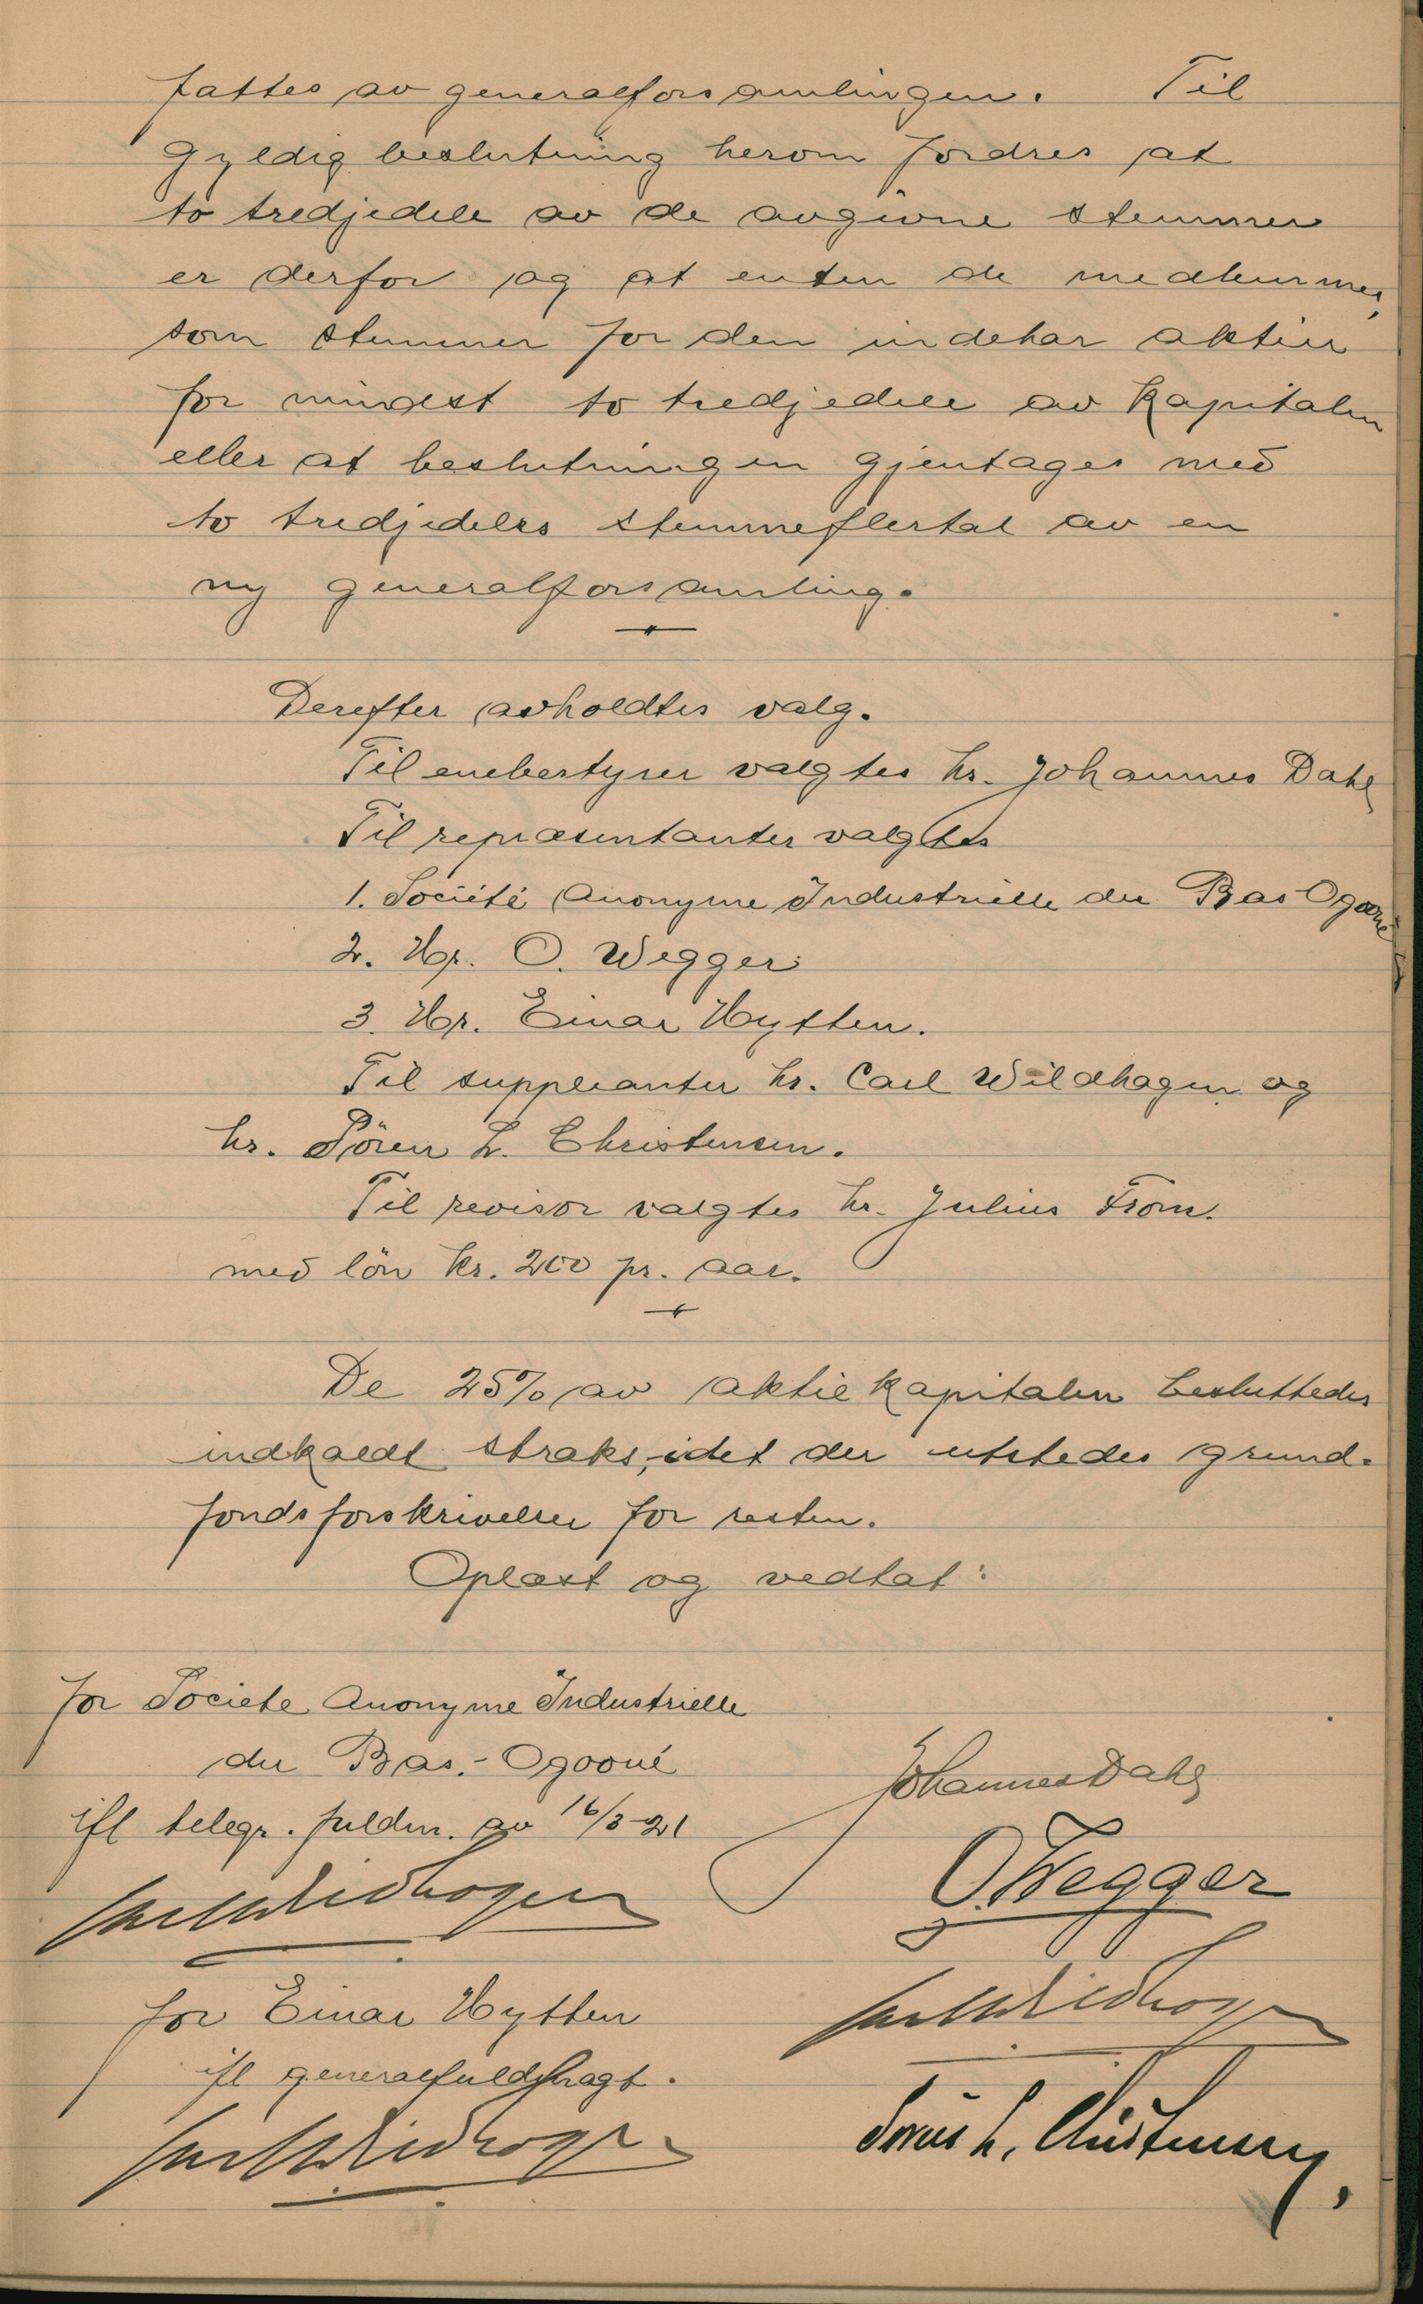 fattes av generalforsamlingen. Til
gyldig beslutning herom fordres at
to tredjedele av de avgivne stemmer
er derfor og at enten de medlemmer,
som stemmer for den indehar aktier
for mindst to tredjedele av kapitalen
eller at beslutningen gjentages med
to tredjedeles stemmeflertal av en
ny generalforsamling.
Derefter avholdtes valg.
Til enebestyrer valgtes hr. Johannes Dahl
Til repræsentanter valgtes
1. Société Anonyme Industrielle du Bas Ogooué
2. Hr. O. Wegger
3. Hr. Einar Hytten.
Til suppleanter hr. Carl Wildhagen og
hr. Sören L. Christensen.
Til revisor valgtes hr. Julius From.
med lön kr. 200 pr. aar.
De 25% av aktiekapitalen besluttedes
indkaldt straks, idet der utstedes grund-
fondsforskrivelser for resten.
Oplæst og vedtat:
for Societe Anonyme Industrielle
du Bas.-Ogooué
ifl telegr. fuldm. av 16/3-21
Carl Wildhagen
for Einar Hytten
ifl generalfuldmagt.
Carl Wildhagen
Johannes Dahl
O. Wegger
Carl Wildhagen
Sören L. Christensen,